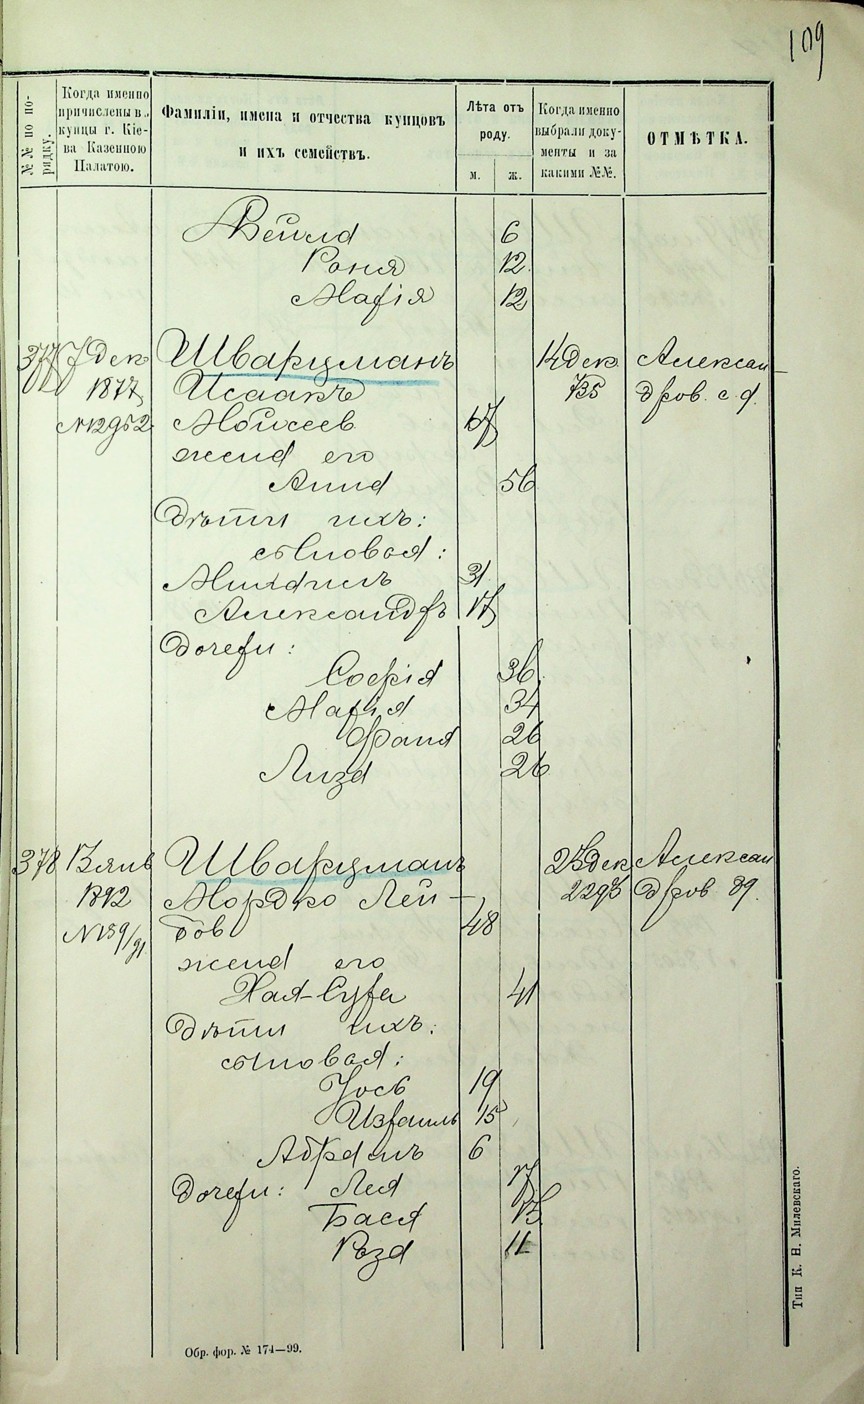 109
№№ по порядку.
Когда именно причислены въ купцы г. Кіева Казенною Палатою.
Фамиліи, имена и отчества купцовъ и ихъ семействъ.
Лѣта отъ роду.
м.
ж.
Когда именно выбрали документы и за какими №№.
ОТМѢТКА.
Бейла 6
Роня 12
Марія 12
377 7 дек. Шварцманъ 14 дек. Алексан-
1877 Исаакъ 735 дров. с. д.
№12952 Мойсеев
жена его
Анна 56
Дѣти ихъ:
сыновья:
Михаилъ 31
Александръ 17
Дочери:
Софія 36
Марія 34
Фаня 26
Лиза 26
378 13 янв Шварцманъ 23 дек. Алексан
1892 Мордко Лей- 2293 дров 89.
№139/91 бов 48
жена его
Хая-Сура 41
Дѣти ихъ:
сыновья:
Іось 19
Израиль 15
Абрамъ 6
Дочери: Лея 17
Бася 13
Роза 11
Обр. фор. № 174—99.
Тип К. Н. Милевскаго.